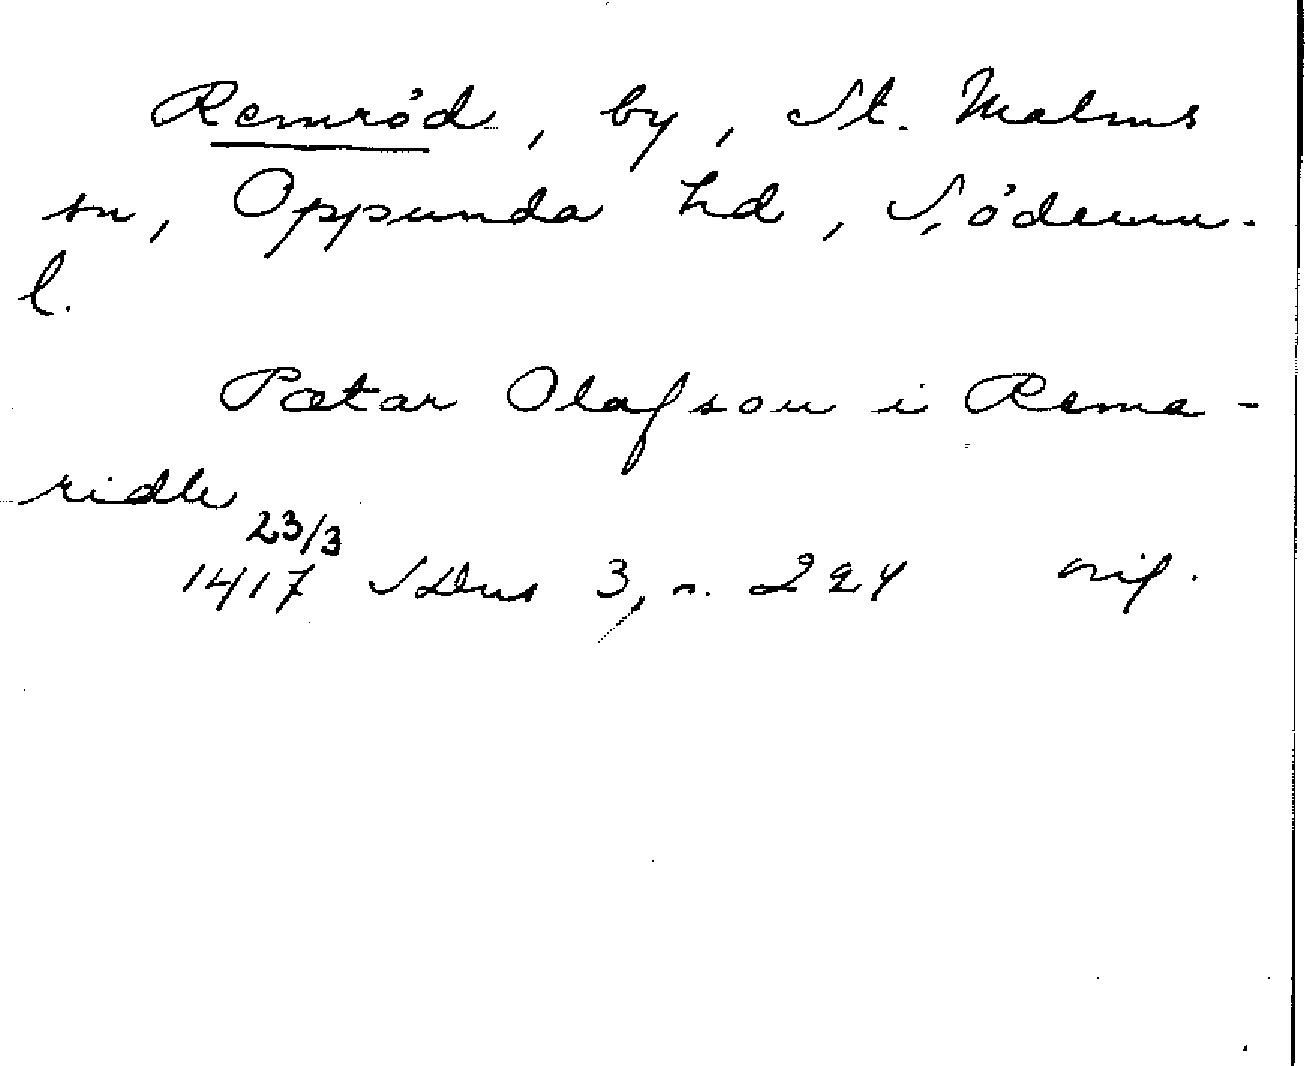 Remröd, by, St. Malms
sn, Oppunda hd, Söderm.
l.
Pætar Olafson i Rema-
ridhe
23/3
1417 SDns 3, n. 224 orig.